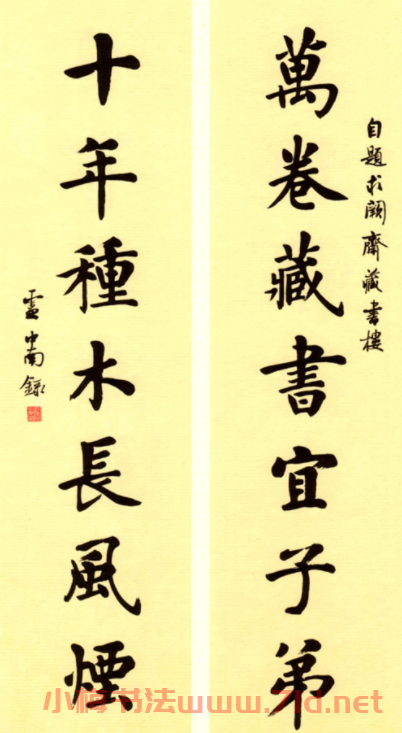 自題求闕齋藏書樓
萬卷藏書宜子弟
十年種木長風煙
盧中南錄
小梅书法www.7ld.net